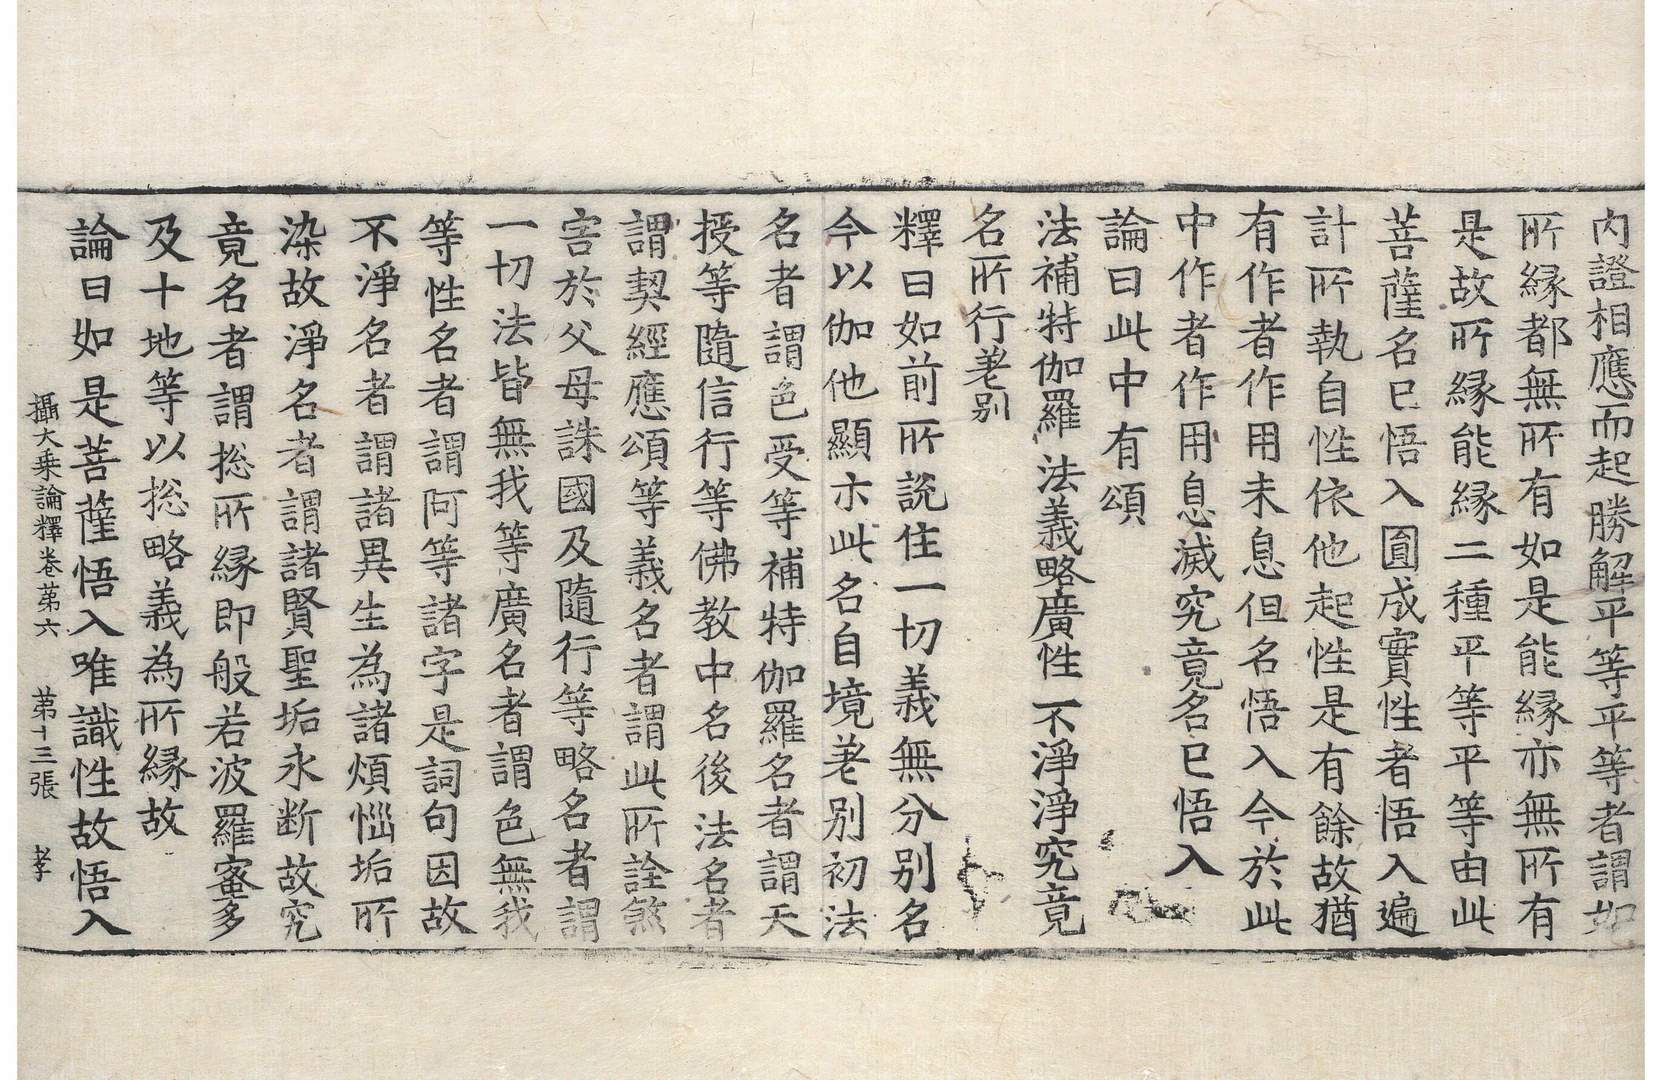 内證相應而起勝解平等平等者謂如
所縁都無所有如是能縁亦無所有
是故所縁能縁二種平等平等由此
菩薩名已悟入圓成實性者悟入遍
計所執自性依他起性是有餘故猶
有作者作用未息但名悟入今於此
中作者作用息滅究竟名已悟入
論曰此中有頌
法補特伽羅 法義略廣性 不淨淨究竟
名所行差别
釋曰如前所説住一切義無分别名
今以伽他顯示此名自境差别初法
名者謂色受等補特伽羅名者謂天
授等隨信行等佛教中名後法名者
謂契經應頌等義名者謂此所詮煞
害於父母誅國及隨行等略名者謂
一切法皆無我等廣名者謂色無我
等性名者謂阿等諸字是詞句因故
不淨名者謂諸異生為諸煩惱垢所
染故淨名者謂諸賢聖垢永断故究
竟名者謂揔所縁即般若波羅蜜多
及十地等以揔略義為所縁故
論曰如是菩薩悟入唯識性故悟入
攝大乗論釋卷第六 第十三張 孝